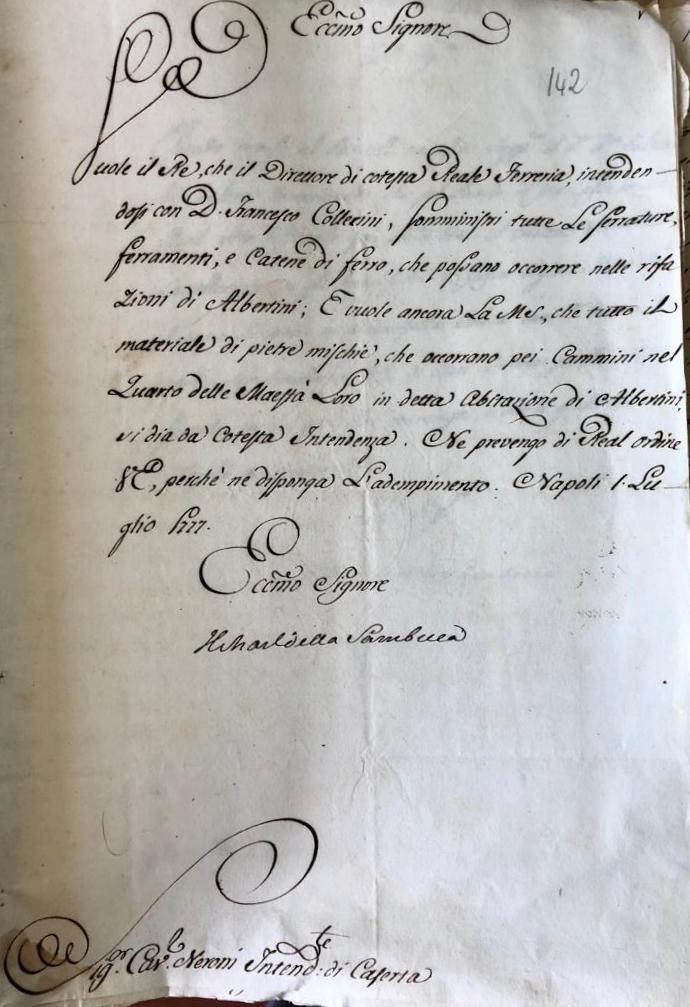 Eccmo Signore
142
Vuole il Re, che il Direttore di cotesta Reale Ferreria, intenden-
dosi con D. Francesco Collecini, somministri tutte Le serrature,
ferramenti, e Catene di ferro, che possano occorrere nelle rifa
zioni di Albertini; E vuole ancora La M.S., che tutto il
materiale di pietre mischie, che occorrano pei Cammini nel
Quarto delle Maestà Loro in detta Abitazione di Albertini,
si dia da Cotesta Intendenza. Ne prevengo di Real ordine
V.E., perchè ne disponga L'adempimento. Napoli 1. Lu-
glio 1777.
Eccmo Signore
Il Mar. della Sambuca
Sigr. Cavr. Neroni Intendte: di Caserta